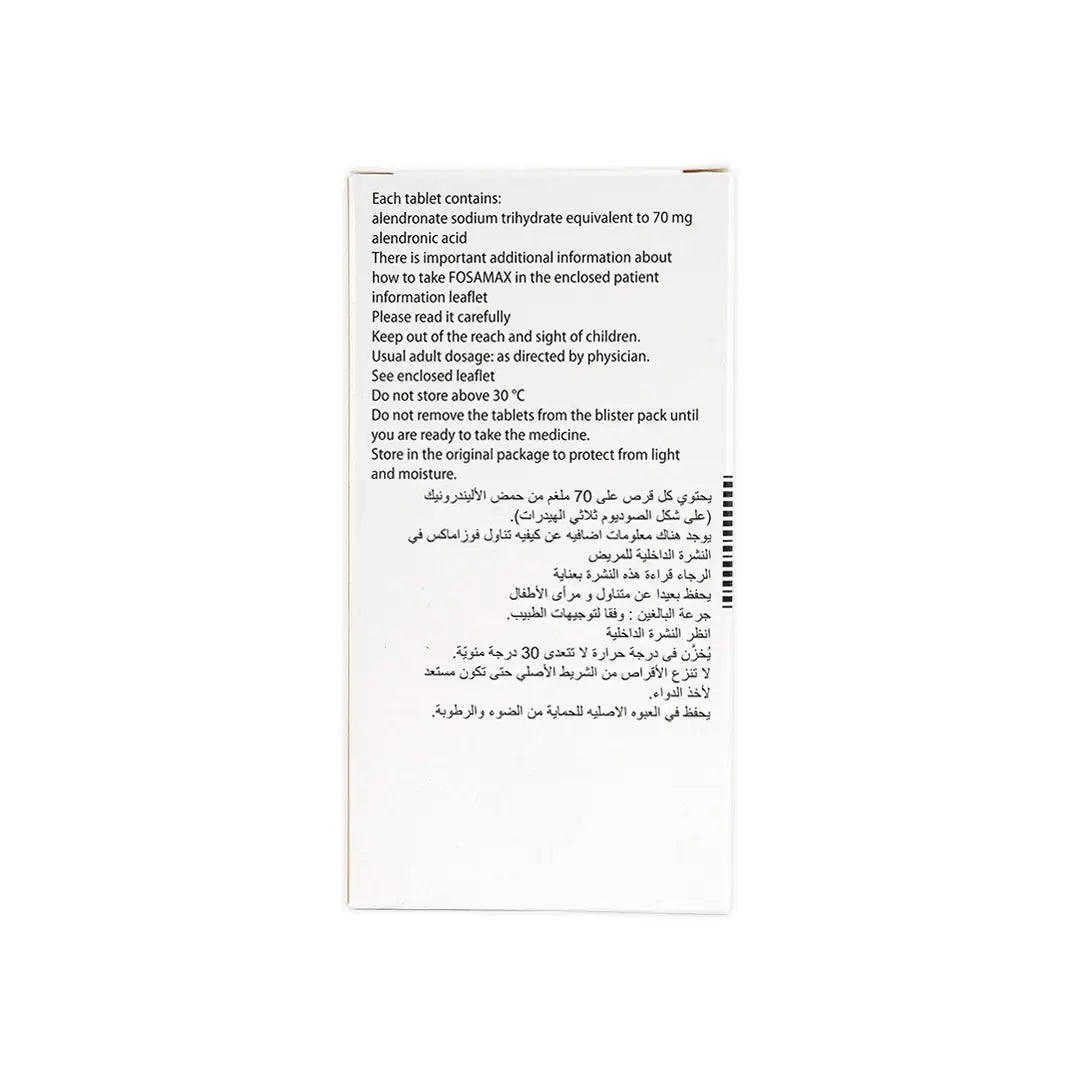 Each tablet contains:
alendronate sodium trihydrate equivalent to 70 mg
alendronic acid
There is important additional information about
how to take FOSAMAX in the enclosed patient
information leaflet
Please read it carefully
Keep out of the reach and sight of children.
Usual adult dosage: as directed by physician.
See enclosed leaflet
Do not store above 30 °C
Do not remove the tablets from the blister pack until
you are ready to take the medicine.
Store in the original package to protect from light
and moisture.
يحتوي كل قرص على 70 ملغم من حمض الأليندرونيك
(على شكل الصوديوم ثلاثي الهيدرات).
يوجد هناك معلومات اضافيه عن كيفيه تناول فوزاماكس في
النشرة الداخلية للمريض
الرجاء قراءة هذه النشرة بعناية
يحفظ بعيدا عن متناول و مرأى الأطفال
جرعة البالغين : وفقا لتوجيهات الطبيب.
انظر النشرة الداخلية
يُخزَّن فى درجة حرارة لا تتعدى 30 درجة مئويّة.
لا تنزع الأقراص من الشريط الأصلي حتى تكون مستعد
لأخذ الدواء.
يحفظ في العبوه الاصليه للحماية من الضوء والرطوبة.